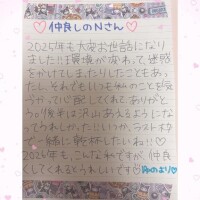 ♡仲良しのNさん♡
2025年も大変お世話になり
ました!!環境が変わって、迷惑
をかけてしまったりしたこともあっ
たし、それでもいつも私のことを気
づかって心配してくれてありがと
う。後半は沢山あえるようにな
ってうれしかった!!いつか、ラストオタ
で一緒に乾杯したいね!!♡
2026年も、こんな私ですが、仲良
くしてくれるとうれしいです♡